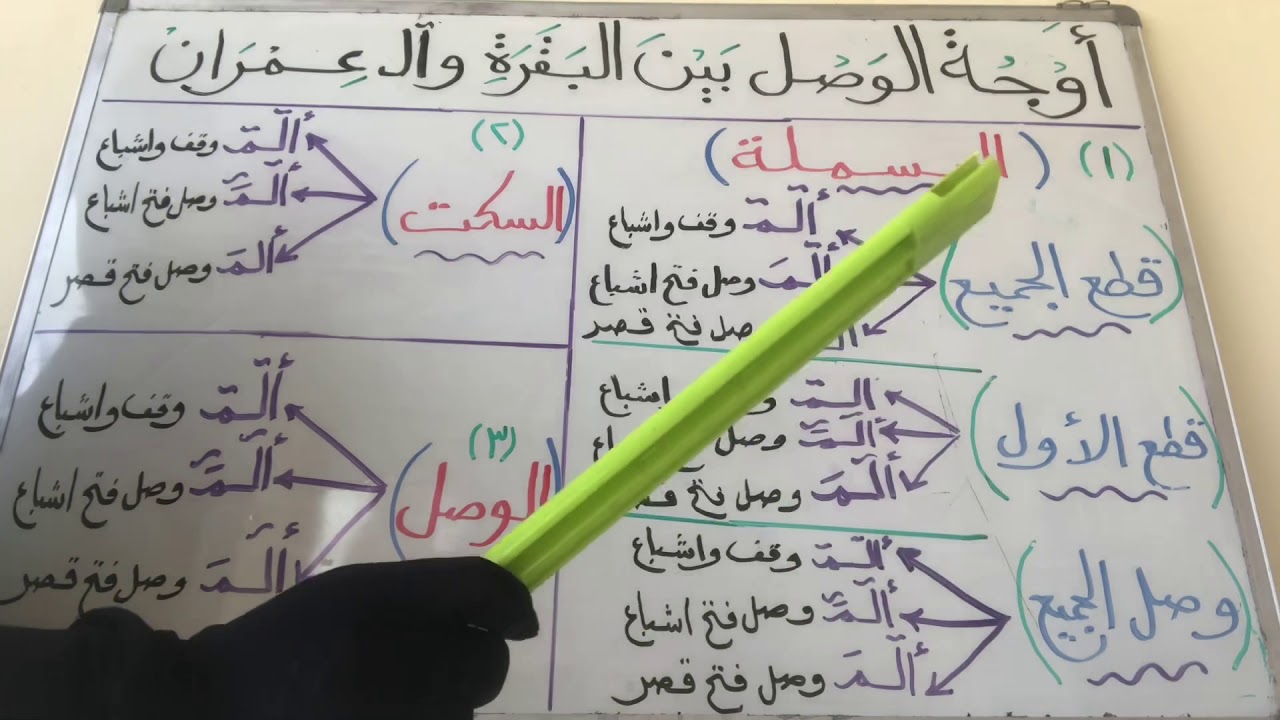 أَوْجُهُ الوَصْل بَيْنَ البَقَرَةِ وآل عِمْرَان
(١) (البسملة)
(قطع الجميع)
أَلٓمّٓ وقف واشباع
أَلٓمَّٓ وصل فتح اشباع
وصل فتح قصر
(قطع الأول)
أَلٓمّٓ واشباع
أَلٓمَّٓ وصل
أَلٓمَّ وصل فتح قصر
(وصل الجميع)
أَلٓمّٓ وقف واشباع
أَلٓمَّٓ وصل فتح اشباع
أَلٓمَّ وصل فتح قصر
(٢)
(السكت)
أَلٓمّٓ وقف واشباع
أَلٓمَّٓ وصل فتح اشباع
أَلمَّ وصل فتح قصر
(٣)
(الوصل)
أَلٓمّٓ وقف واشباع
أَلٓمَّٓ وصل فتح اشباع
أَلٓمَّ وصل فتح قصر